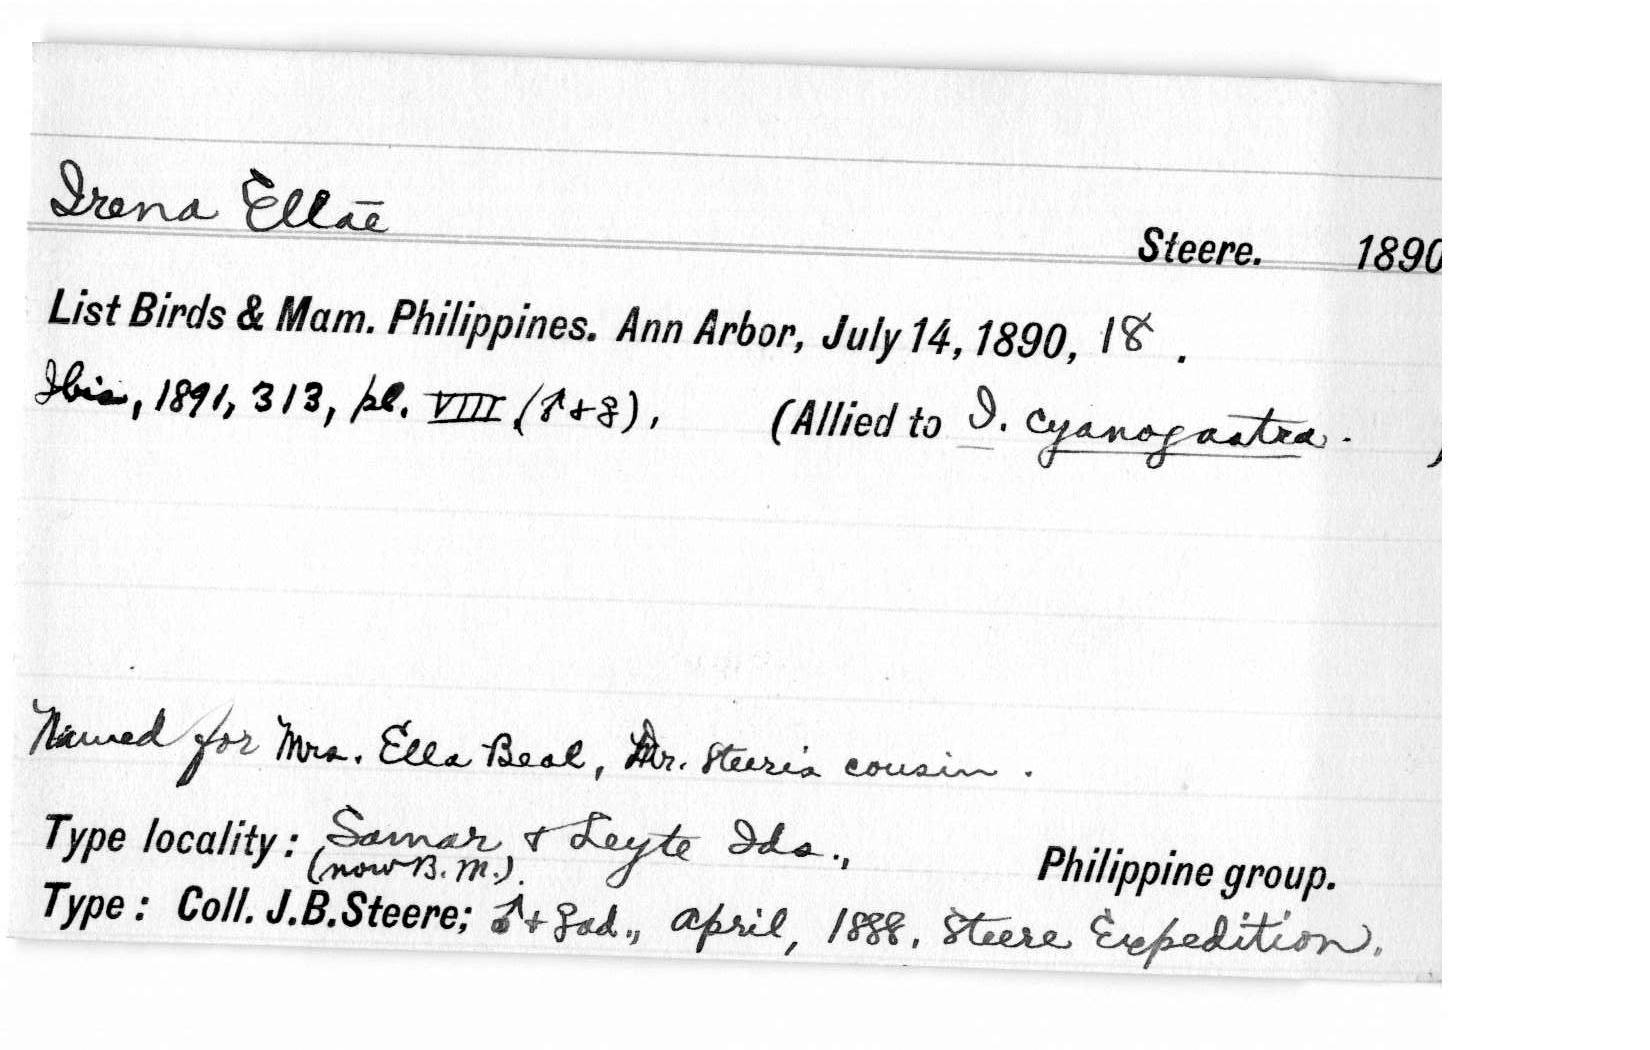 Irena Ellae
Steere. 1890
List Birds & Mam. Philippines. Ann Arbor, July 14, 1890, 18.
Ibis, 1891, 313, pl. VIII (♂+♀). (Allied to I. cyanogastra. )
Named for Mrs. Ella Beal, Mr. Steere's cousin.
Type locality: Samar & Leyte Ids., Philippine group.
(now B.M.).
Type: Coll. J.B.Steere; ♂+♀ad., April, 1888. Steere Expedition.